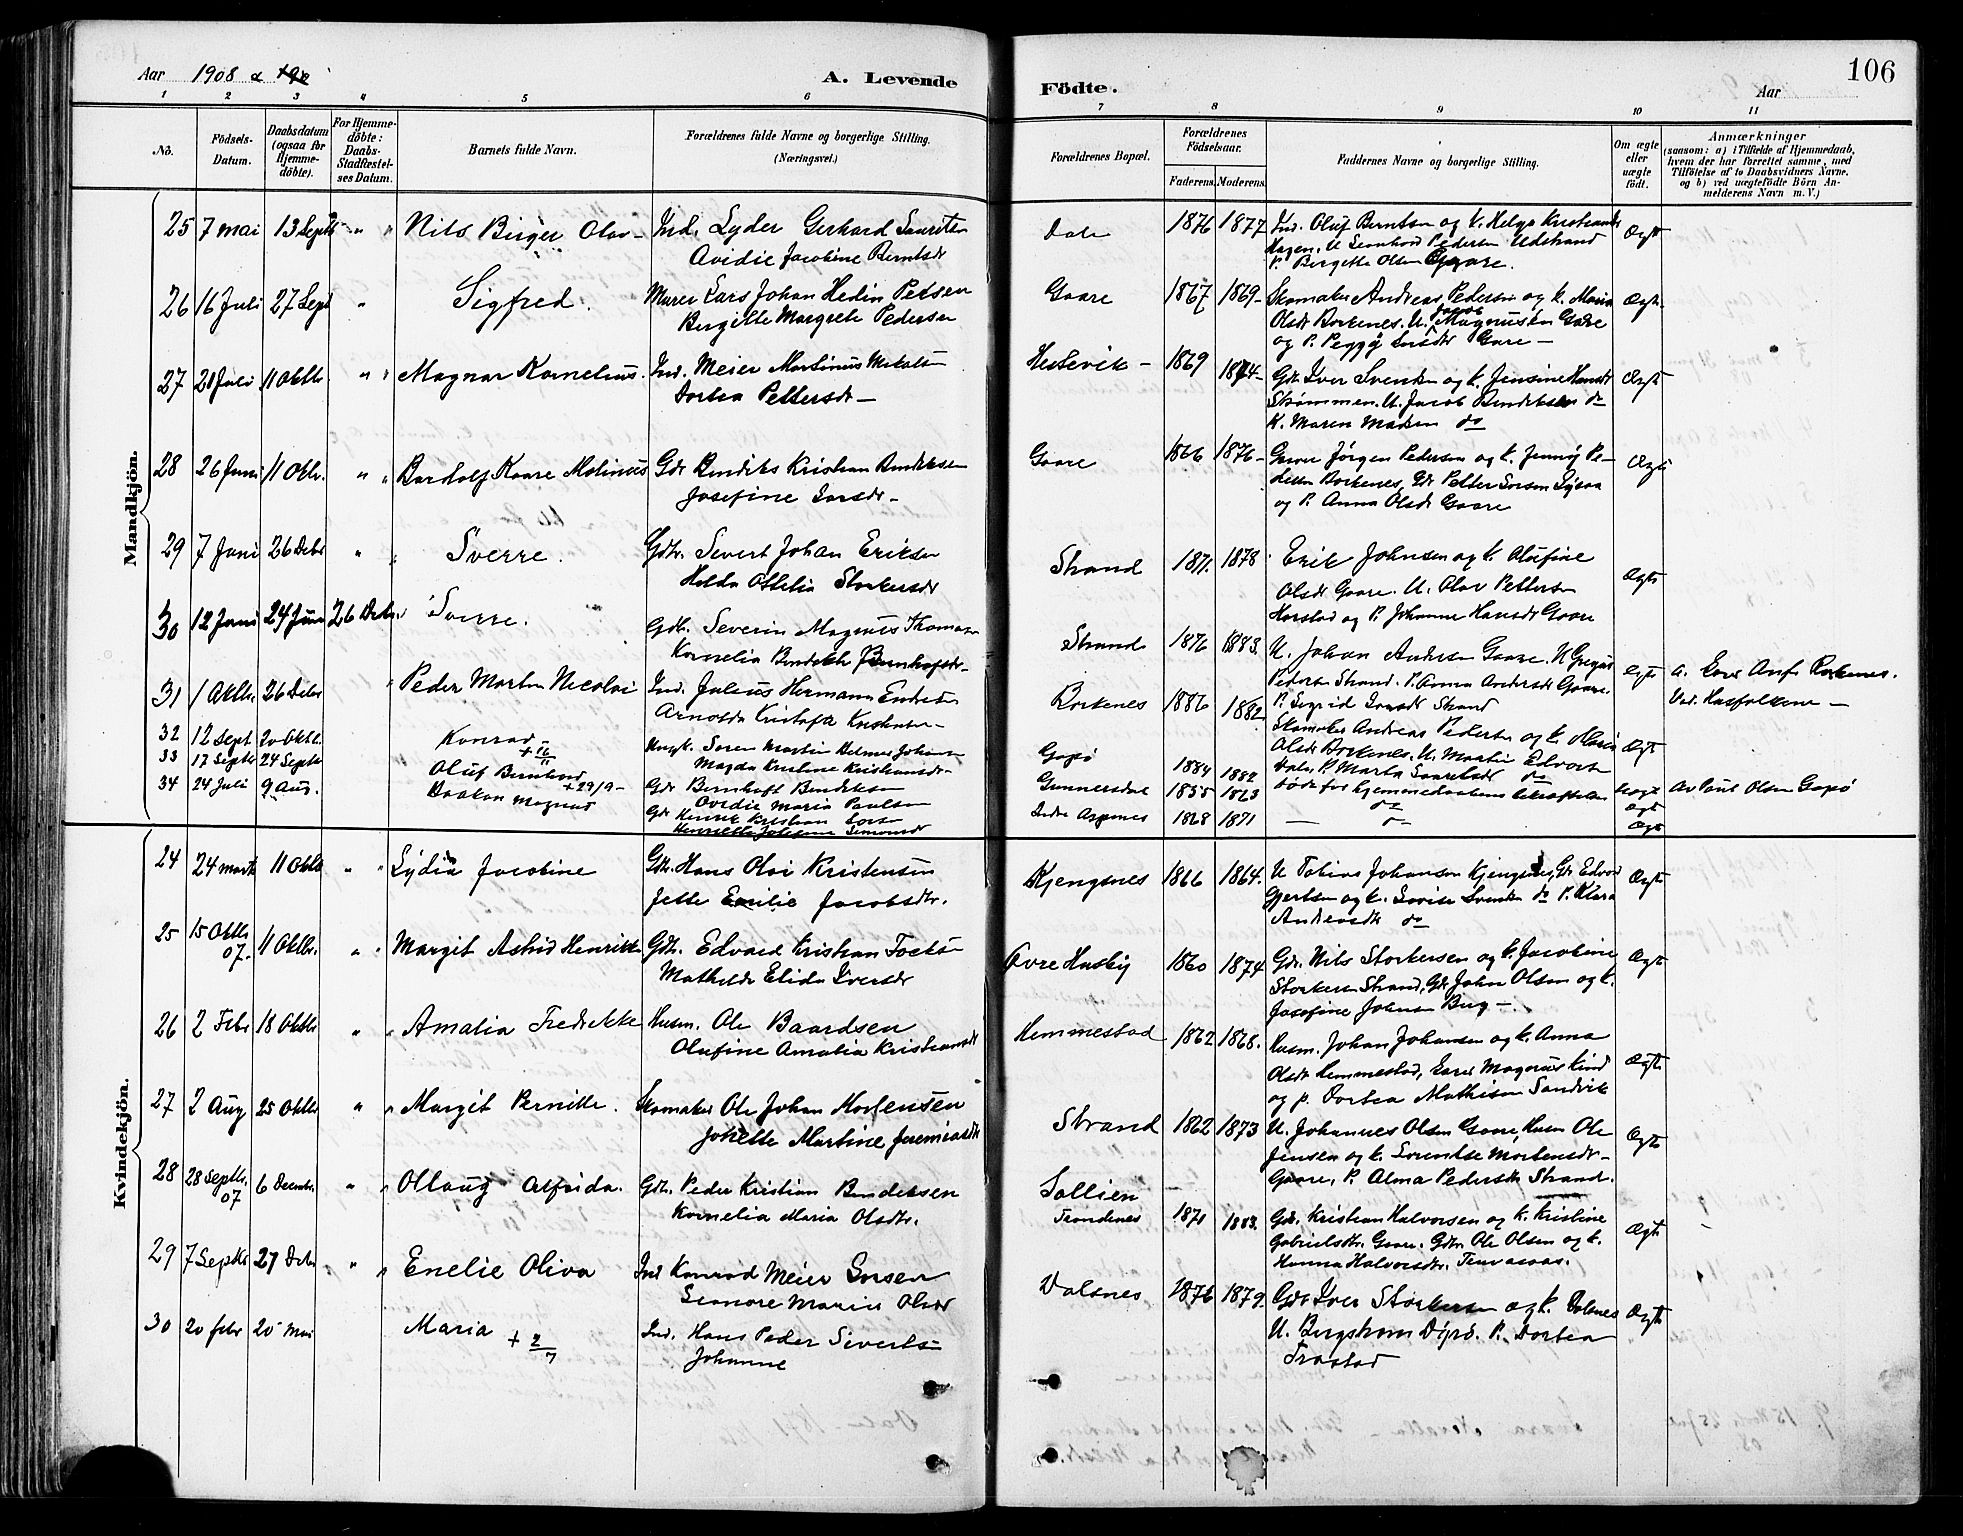 Aar 1908
A. Levende
Födte.
Aar
106
1 2 3 4 5 6 7 8 9 10 11
No.
Födsels-Datum.
Daabsdatum (ogsaa for Hjemmedöbte).
For Hjemmedöbte: Daabs-Stadfæstelses Datum.
Barnets fulde Navn.
Forældrenes fulde Navne og borgerlige Stilling. (Næringsvei.)
Forældrenes Bopæl.
Forældrenes Födselsaar.
Faderens. Moderens.
Faddernes Navne og borgerlige Stilling.
Om ægte eller uægte födt.
Anmærkninger
(saasom: a) i Tilfælde af Hjemmedaab,
hvem der har forrettet samme, med
Tilföielse af to Daabsvidners Navne.
og b) ved uægtefödte Börn Anmelderens Navn m. V.)
Mandkjön.
25 7 mai 13 Septb " " Nils Birger Olav Ind. Lyder Gerhard Lauritsen
Ovidie Jacobine Berntsdr
Dale 1876 1877 Ind. Oluf Berntsen og k. Helga Kristiansdr
Hagen. U. Leonhard Pedersen Udstrand
P. Bergitte Olsen Gaare. Ægt
26 16 Juli 27 Sept " Sigfred. Murer Lars Johan Hedin Petsen
Bergitte Margrete Pedersen
Gaare 1867 1869 Skomaker Andreas Pedersen og k. Maria
Olsdr Borkenes. U. Magnusen Gaare
og P. Peggy Larsdr Gaare — Ægt.
27 21 Juli 11 Oktb. " " Magnar Kornelius. Ind. Meier Martinus Mikalsen
Dortea Pettersdr —
Hestevik — 1869 1874 Gdb. Iver Svendsen og k. Jensine Hansdr
Skømmen. U. Jacob Bendiksen do
K. Maren Madsen do Ægt
28 26 Juni 11 Oktbr. " " Bardolf Kaare Molinus Gdb Bendiks Kristian Bendiksen
Josefine Larsdr —
Gaare 1866 1876 Garver Jörgen Pedersen og k. Jenny Pedersen Borkenes, Gdb Petter Larsen
og P. Anna Olsdr Gaare Ægt
29 7 Juni 26 Debr " " Sverre. Gdb. Sivert Johan Eriksen
Helda Ottelia Storkersdr
Strand 1871. 1878 Erik Johnsen og k. Olufine
Olsdr Gaare. U. Olav Pettersen
Harstad og P. Johanne Hansdr Gaare Ægt
30 12 Juni 24 Juni 26 Debr. Sverre. Gdb. Severin Magnus Thomasen
Kornelia Bendikte Bernhofsdr.
Strand 1876 1883. U. Johan Andersen Gaare. U. Gregus
Pedersen Strand. P. Anna Andersdr Gaare.
P. Sigrid Larsdr Strand Ægt a. Borkenes.
31 1 Oktbr 26 Debr " Peder Martin Nicolai Ind. Julius Hermann Endresen
Arnolda Kristofa Kristensen —
Borkenes 1886 1882 Skomaker Andreas Pedersen og k. Maria
Olsdr Borkenes. U. Martin Edvart
Dale, P. Marta Lauritsdr do Ægt
32 12 Sept 20 Oktb. Konrad + 16/11 Ungk. Søren Martin Helmer Johansen
Magda Kristine Kristiansdr.
Gapø 1884 1882 døde før hjemmedaabens bekræftelse Uægt Av Paul Olsen Gapø
33 17 Septb 24 Septb Oluf Bernhard + 29/9 — Gdb Bernhoft Bendiksen
Ovidie Maria Paulsen
Gunnersdal 1855 1863 do Ægt
34 24 Juli 9 Aug. Haakon Magnus Gdb Henrik Kristian Larsen
Henriette Simonsdr
Indre Aspenes 1868 1871 — Ægt
Kvindekjön.
24 24 marts 11 Oktb " " Lydia Jacobine Gdb. Hans Olai Kristensen
Jette Emilie Jacobsdtr.
Kjengsnes 1866 1864. U Tobias Johansen Kjengsnes, Gdb Edvard
Gjertsen og k. Lovise Svendsen do P. Klara
Andreasdtr do Ægt
25 15 Oktbr 07. 11 Oktbr. " " Margit Astrid Henrikke Gdb. Edvard Kristian Tostesen
Mathilde Elida Iversdr
Øvre Husby 1860 1874 Gdb. Nils Storkersen og k. Jacobine
Storkersen Strand, Gdb John Olsen og k.
Josefine Johnsen Berg — Ægt
26 2 Febr 18 Oktbr " " Amalia Fredrikke Husm. Ole Baardsen
Olufine Amalia Kristiansdr
Hemmestad 1862 1868. Husm. Johan Johansen og k. Anna
Olsdr Hemmestad, Magnus Kind
og p. Dortea Mathisen Sandvik Ægt
27 2 Aug 25 Oktbr " " Margit Pernille. Skomaker Ole Johan Mortensen
Jonette Martine Jeremiasdtr
Strand 1862 1873 U. Johannes Olsen Gaare, Husm Ole
Jensen og k. Lorentse Mortensdr.
Gaare, P. Alma Pedersdtr Strand. Ægt
28 28 Septbr. 07 6 Decembr. " " Ollaug Alfrida. Gdb. Peder Kristian Bendiksen
Kornelia Maria Olsdtr.
Sollien
Trondenes 1871 1883. Gdb. Kristian Halvorsen og k. Kristine
Gabrielsdtr. Gaare. Gdb. Ole Olsen og k.
Hanna Halvorsdtr. Ægt
29 7 Septbr 27 Debr " " Enelie Oliva Ind Konrad Meier Larsen
Leonore Marie Olsdr
Valsnes 1876 1879. Gdb Iver Storkersen og k. Valsnes
U. Bergstrøm Dyrø. P. Dortea
Trastad Ægt
30 20 febr 20 Mai Maria + 2/7 Ind. Hans Peder Sivertsen
Johanne